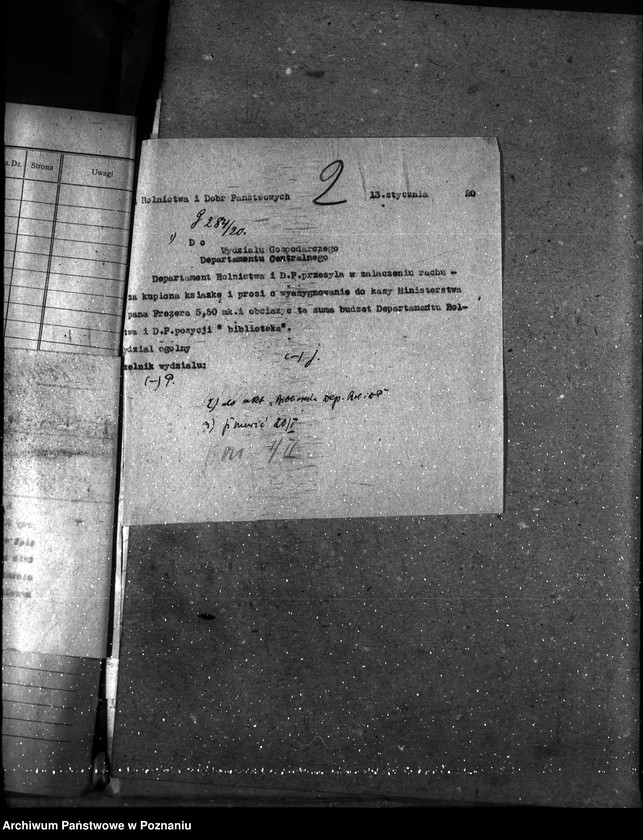 z. Dz. Strona Uwagi
Rolnictwa i Dobr Państwowych 2 13.stycznia 20
J 284/20.
1) D o
Wydzialu Gospodarczego
Departamentu Centralnego
Departament Rolnictwa i D.P.przesyla w zalaczeniu rachu -
za kupiona ksiazkę i prosi o wyasygnowanie do kasy Ministerstwa
pana Prezera 5,50 mk.i obciazyc ta suma budzet Departamentu Rol-
twa i D.P.pozycji " biblioteka".
ydzial ogolny
zelnik wydzialu:
(-) J.
(-) P.
2) do akt „Biblioteka Dep. Rol i DP"
3) 20/I
4/II
Archiwum Państwowe w Poznaniu